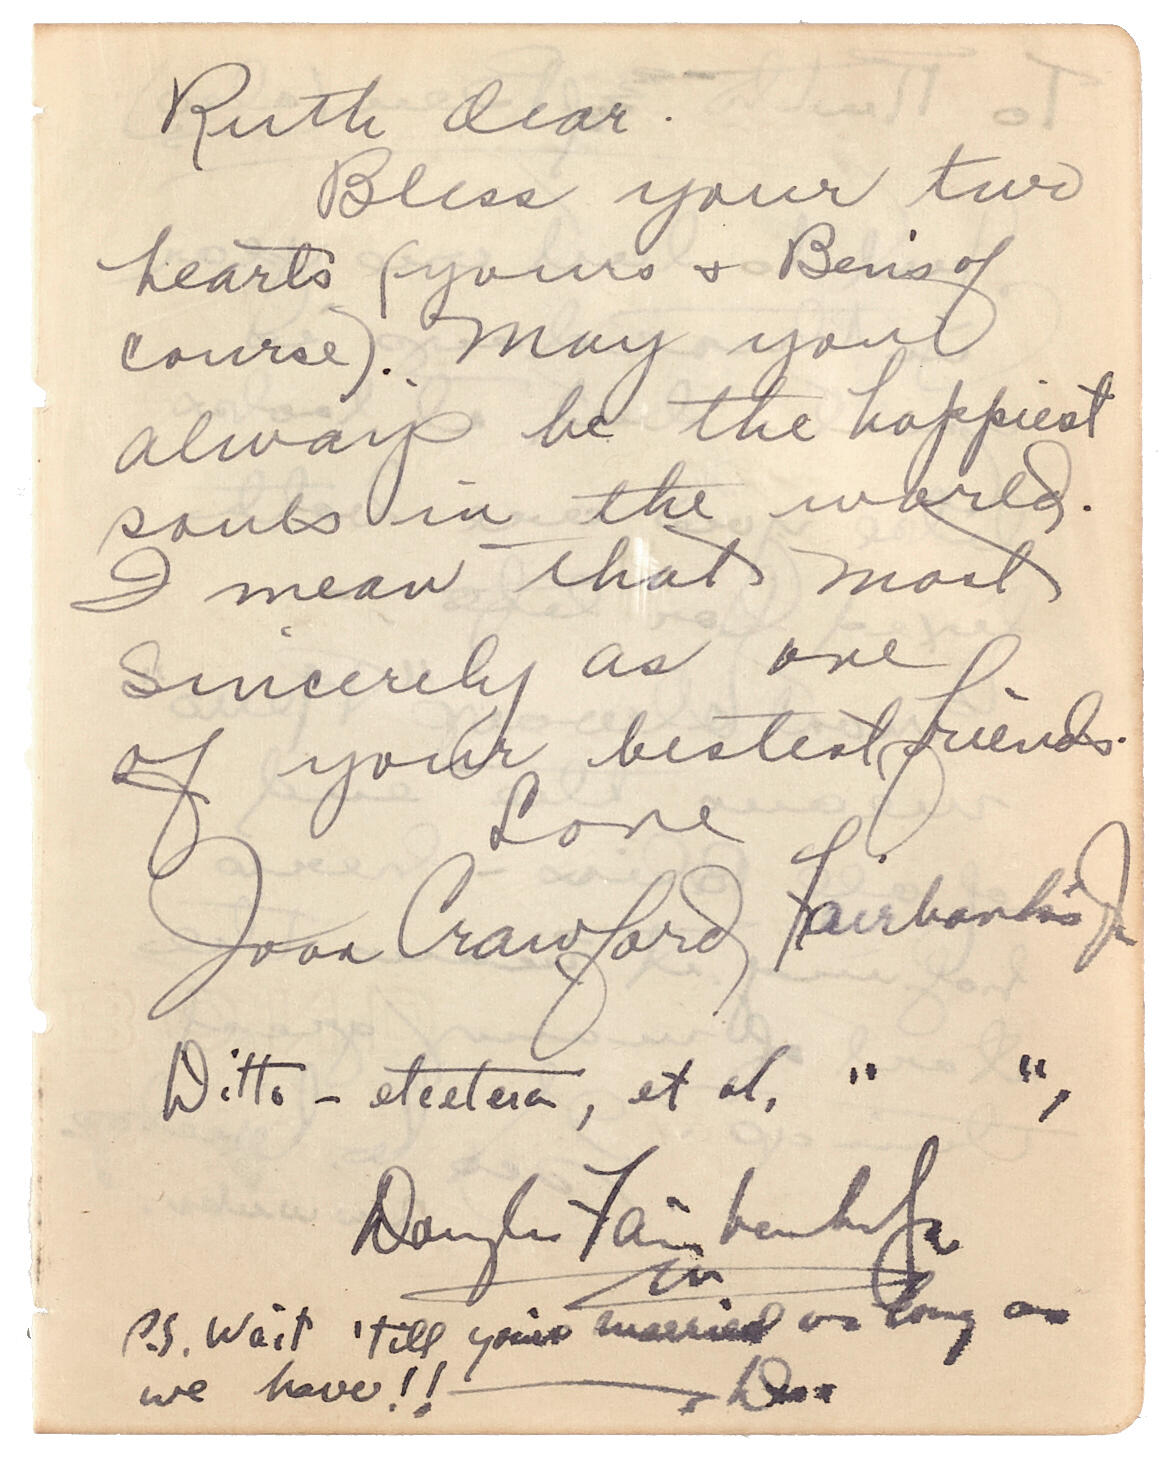 Ruth dear.
Bless your two
hearts (yours & Ben's of
course). May you
always be the happiest
souls in the world.
I mean that most
sincerely as one
of your bestest friends.
Love
Joan Crawford Fairbanks Jr
Ditto - etcetera, et al, "  ",
Douglas Fairbanks Jr
P.S. Wait 'till your married as long as
we have!!